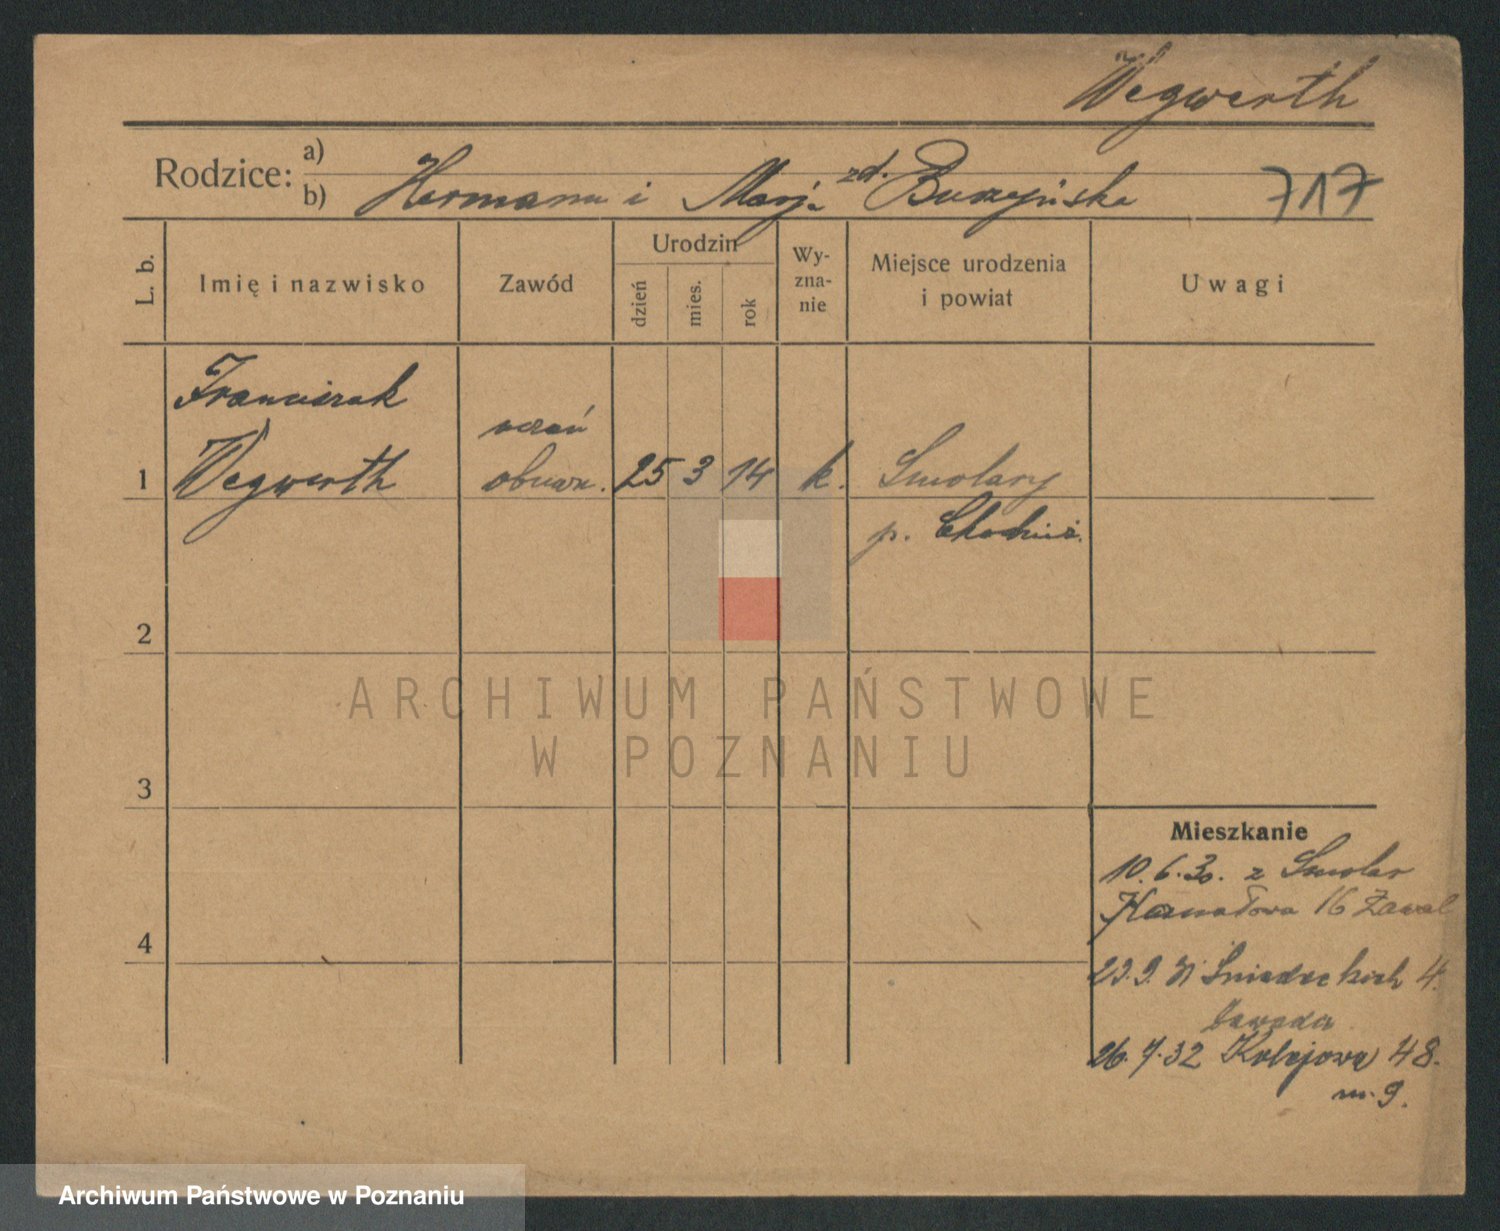 Wegwerth
Rodzice: a)
b) Hermann i Marj. zd. Buszyńska
717
L. b.
Imię i nazwisko
Zawód
Urodzin
dzień
mies.
rok
Wy-
zna-
nie
Miejsce urodzenia
i powiat
Uwagi
Franciszek
uczeń
1 Wegwerth obuwn. 25 3 14 k. Smolary
p. Chodzież.
2
3
4
Mieszkanie
10.6.30. z Smolar
16
23.9.31 Śniadeckich 4.
26.7.32 Kolejowa 48.
m. 9.
ARCHIWUM PAŃSTWOWE
W POZNANIU
Archiwum Państwowe w Poznaniu